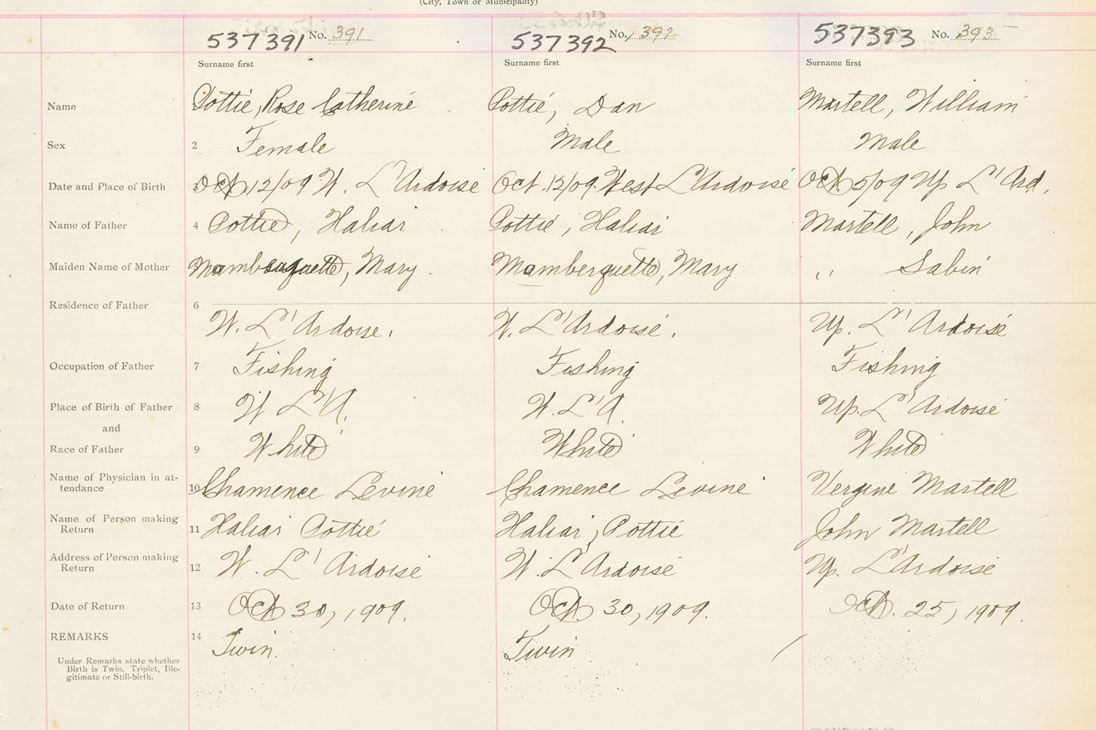 (City, Town or Municipality)
537391 No. 391 537392 No. 392 537393 No. 393
Surname first Surname first Surname first
Name Pottie, Rose Catherine Pottie, Dan Martell, William
Sex 2 Female Male Male
Date and Place of Birth 3 Oct 12/09 W. L'Ardoise Oct. 12/09 West L'Ardoise Oct 5/09 Up L'Ard.
Name of Father 4 Pottie, Haliai Pottie, Haliai Martell, John
Maiden Name of Mother Mary Mamberquette, Mary " Sabin
Residence of Father 6
W. L'Ardoise. W. L'Ardoise. Up. L'Ardoise
Occupation of Father 7 Fishing Fishing Fishing
Place of Birth of Father 8 W L'A. W. L'A. Up. L'Ardoise
and
Race of Father 9 White White White
Name of Physician in at-
tendance 10 Chamence Levine Chamence Levine Vergine Martell
Name of Person making
Return 11 Haliai Pottie Haliai, Pottie John Martell
Address of Person making
Return 12 W. L'Ardoise W. L'Ardoise Up. L'Ardoise
Date of Return 13 Oct 30, 1909. Oct 30, 1909. Oct. 25, 1909.
REMARKS 14 Twin. Twin
Under Remarks state whether
Birth is Twin, Triplet, Ille-
gitimate or Still-birth.